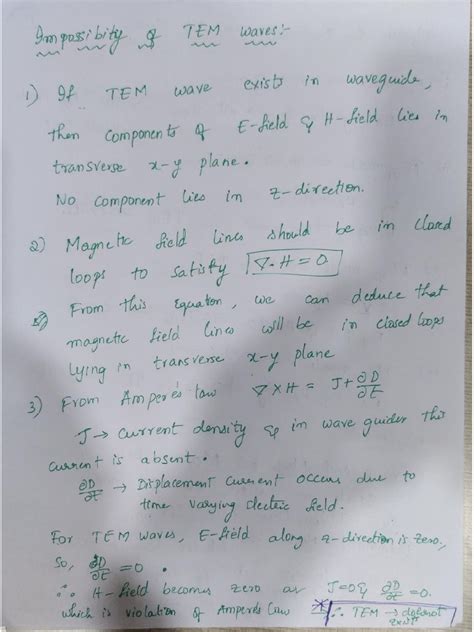 Impossibity of TEM waves:-
1) If TEM wave exists in waveguide,
then components of E-field & H-field lies in
transverse x-y plane.
No component lies in z-direction.
2) Magnetic field lines should be in closed
loops to satisfy ∇.H=0
From this equation, we can deduce that
magnetic field lines will be in closed loops
lying in transverse x-y plane
3) From Ampere's law ∇×H = J+∂D/∂t
J→ current density & in wave guides this
current is absent.
∂D/∂t → Displacement current occurs due to
time varying electric field.
For TEM waves, E-field along z-direction is zero,
So, ∂D/∂t =0.
∴ H-field becomes zero as J=0 & ∂D/∂t =0.
which is violation of Amperes law * ∴ TEM → doesnot
exists